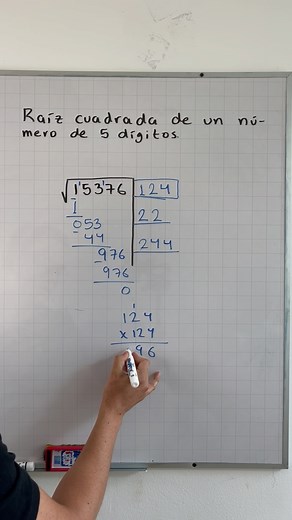 Raíz cuadrada de un nú-
mero de 5 dígitos
√1'53'76 124
1 22
053 244
- 44
976
- 976
0
1
124
x 124
96